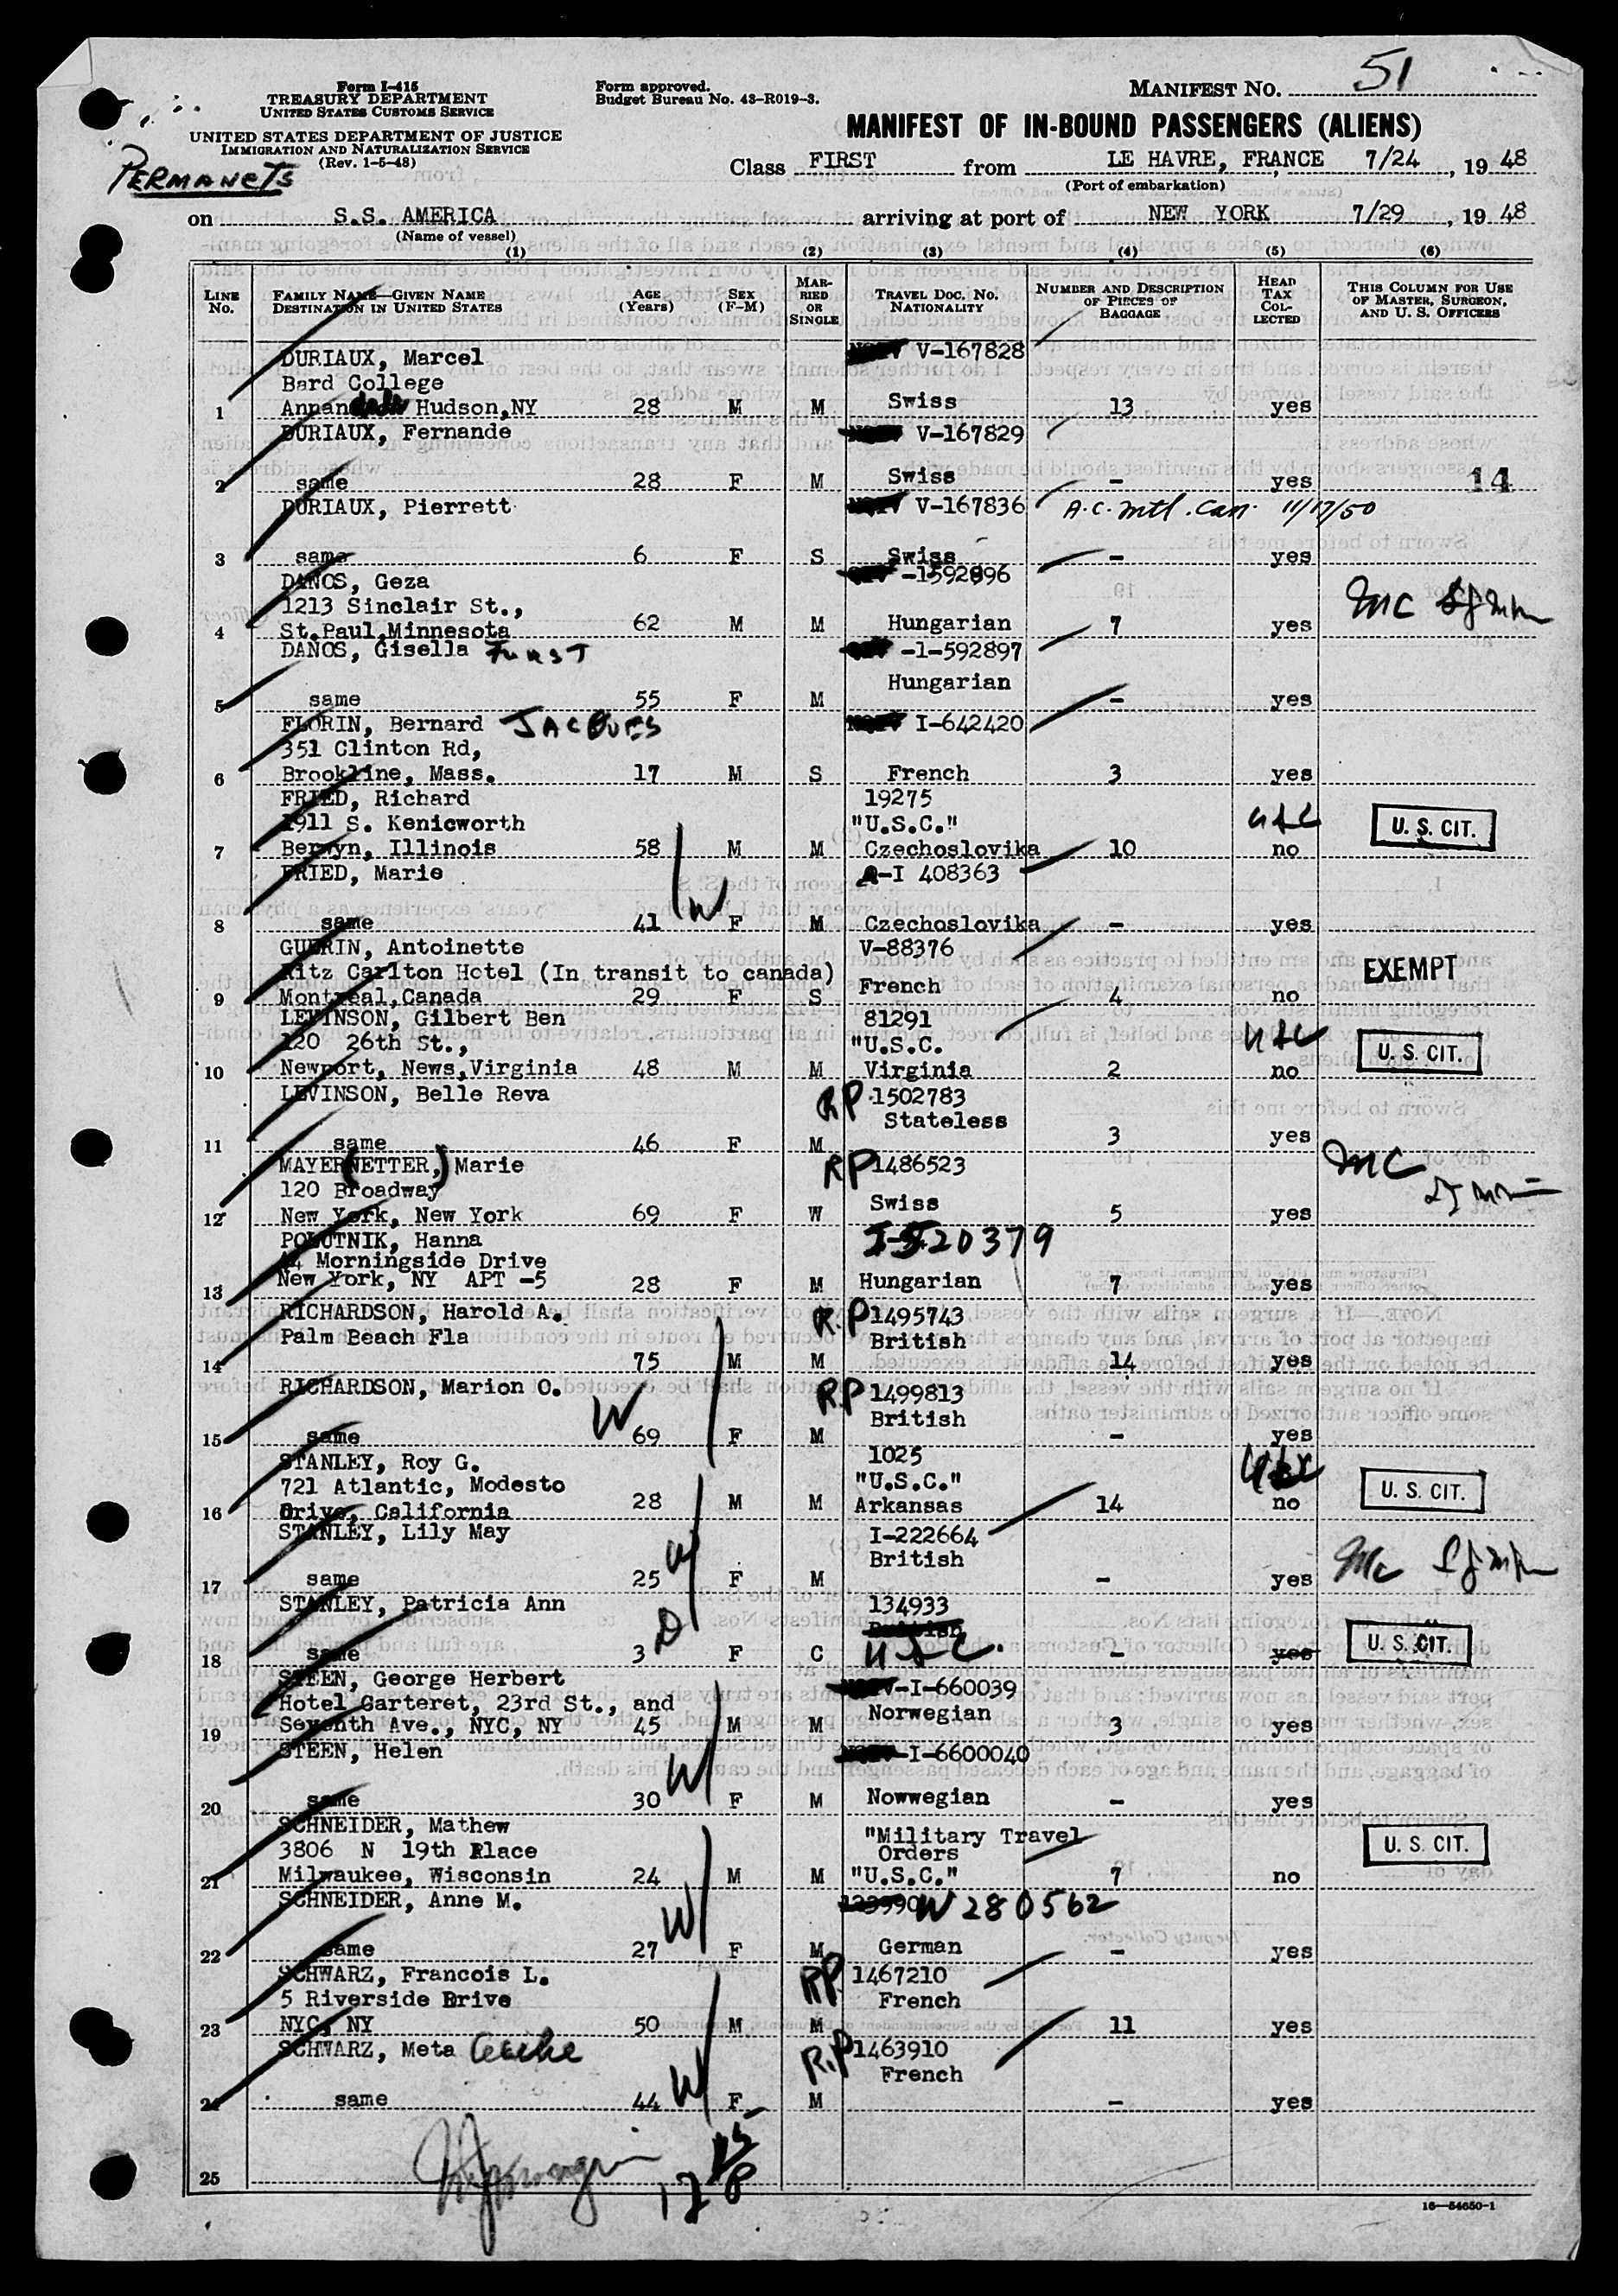 Form I-415
TREASURY DEPARTMENT
UNITED STATES CUSTOMS SERVICE
UNITED STATES DEPARTMENT OF JUSTICE
IMMIGRATION AND NATURALIZATION SERVICE
(Rev. 1-5-48)
PERMANETS
Form approved.
Budget Bureau No. 43-R019-3.
MANIFEST NO. 51
MANIFEST OF IN-BOUND PASSENGERS (ALIENS)
Class FIRST from LE HAVRE, FRANCE 7/24, 19 48
(Port of embarkation)
on S.S. AMERICA arriving at port of NEW YORK 7/29, 19 48
(Name of vessel)
(1) (2) (3) (4) (5) (6)
LINE No. FAMILY NAME—GIVEN NAME DESTINATION IN UNITED STATES AGE (Years) SEX (F-M) MARRIED OR SINGLE TRAVEL DOC. NO. NATIONALITY NUMBER AND DESCRIPTION OF PIECES OF BAGGAGE HEAD TAX COLLECTED THIS COLUMN FOR USE OF MASTER, SURGEON, AND U. S. OFFICERS
DURIAUX, Marcel V-167828
Bard College
1 Hudson, NY 28 M M Swiss 13 yes
DURIAUX, Fernande V-167829
2 same 28 F M Swiss - yes 14
DURIAUX, Pierrett V-167836 A.C. Mtl. Can. 11/17/50
3 same 6 F S Swiss - yes
DANOS, Geza -1592896
1213 Sinclair St.,
4 St.Paul,Minnesota 62 M M Hungarian 7 yes
DANOS, Gisella FURST -1-592897
Hungarian
5 same 55 F M - yes
FLORIN, Bernard JACQUES I-642420
351 Clinton Rd,
6 Brookline, Mass. 17 M S French 3 yes
FRIED, Richard 19275
1911 S. Kenicworth "U.S.C." USC U. S. CIT.
7 Berwyn, Illinois 58 M M Czechoslovika 10 no
FRIED, Marie A-I 408363
W
8 same 41 F M Czechoslovika - yes
GUERIN, Antoinette V-88376
Ritz Carlton Hotel (In transit to canada) EXEMPT
9 Montreal,Canada 29 F S French 4 no
LEVINSON, Gilbert Ben 81291
120 26th St., "U.S.C. USC U. S. CIT.
10 Newport, News,Virginia 48 M M Virginia 2 no
LEVINSON, Belle Reva RP 1502783
Stateless
11 same 46 F M 3 yes
MAYER(NETTER,) Marie RP 1486523
120 Broadway
12 New York, New York 69 F W Swiss 5 yes
POLOTNIK, Hanna I-520379
44 Morningside Drive
13 New York, NY APT -5 28 F M Hungarian 7 yes
RICHARDSON, Harold A. R.P 1495743
Palm Beach Fla British
14 75 M M 14 yes
RICHARDSON, Marion O. R.P 1499813
W British
15 same 69 F M - yes
STANLEY, Roy G. 1025
721 Atlantic, Modesto "U.S.C." USC U. S. CIT.
16 Drive, California 28 M M Arkansas 14 no
STANLEY, Lily May I-222664
W British
17 same 25 F M - yes
STANLEY, Patricia Ann 134933
D British U. S. CIT.
18 same 3 F C U.S.C. - yes
STEEN, George Herbert V-I-660039
Hotel Carteret, 23rd St., and Norwegian
19 Seventh Ave., NYC, NY 45 M M 3 yes
STEEN, Helen I-6600040
W
20 same 30 F M Nowwegian - yes
SCHNEIDER, Mathew "Military Travel
3806 N 19th Place Orders U. S. CIT.
21 Milwaukee, Wisconsin 24 M M "U.S.C." 7 no
SCHNEIDER, Anne M. W 280562
W
22 same 27 F M German - yes
SCHWARZ, Francois L. RP. 1467210
5 Riverside Drive French
23 NYC, NY 50 M M 11 yes
SCHWARZ, Meta Cecile R.P 1463910
W French
24 same 44 F M - yes
25
16—54650-1